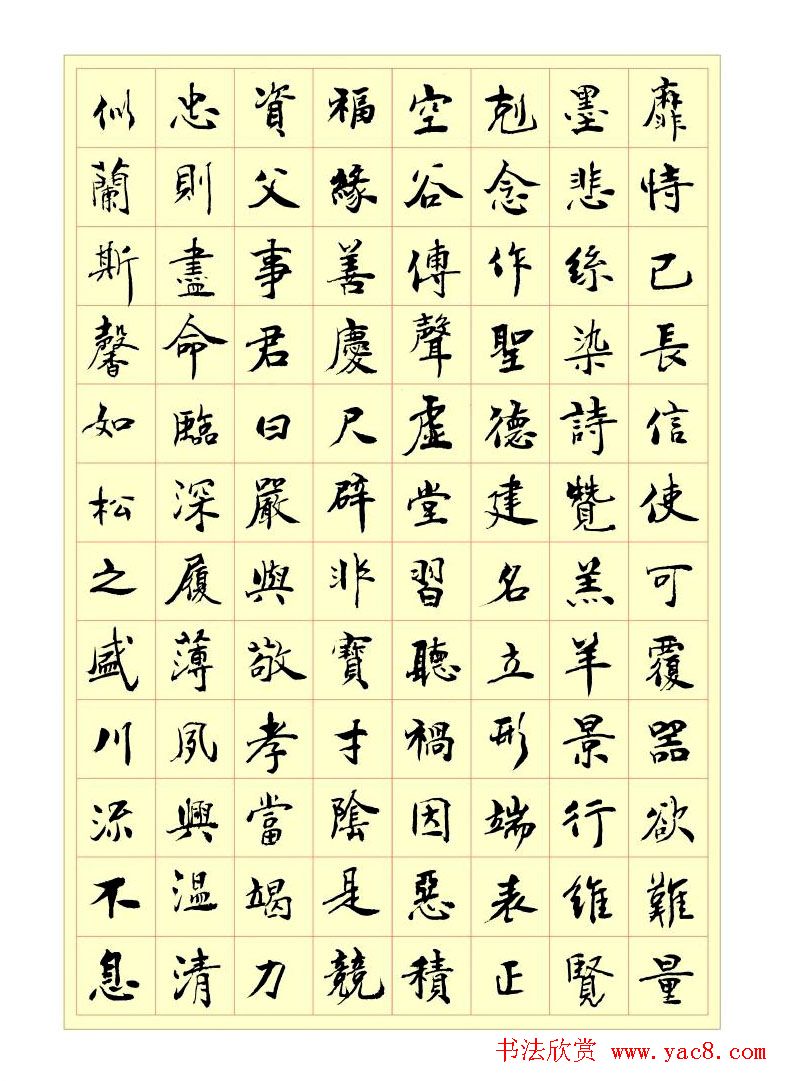 靡恃已長信使可覆器欲難量
墨悲絲染詩贊羔羊景行維賢
剋念作聖德建名立形端表正
空谷傳聲虛堂習聽禍因惡積
福緣善慶尺璧非寶寸陰是競
資父事君曰嚴與敬孝當竭力
忠則盡命臨深履薄夙興溫清
似蘭斯馨如松之盛川流不息
书法欣赏 www.yac8.com